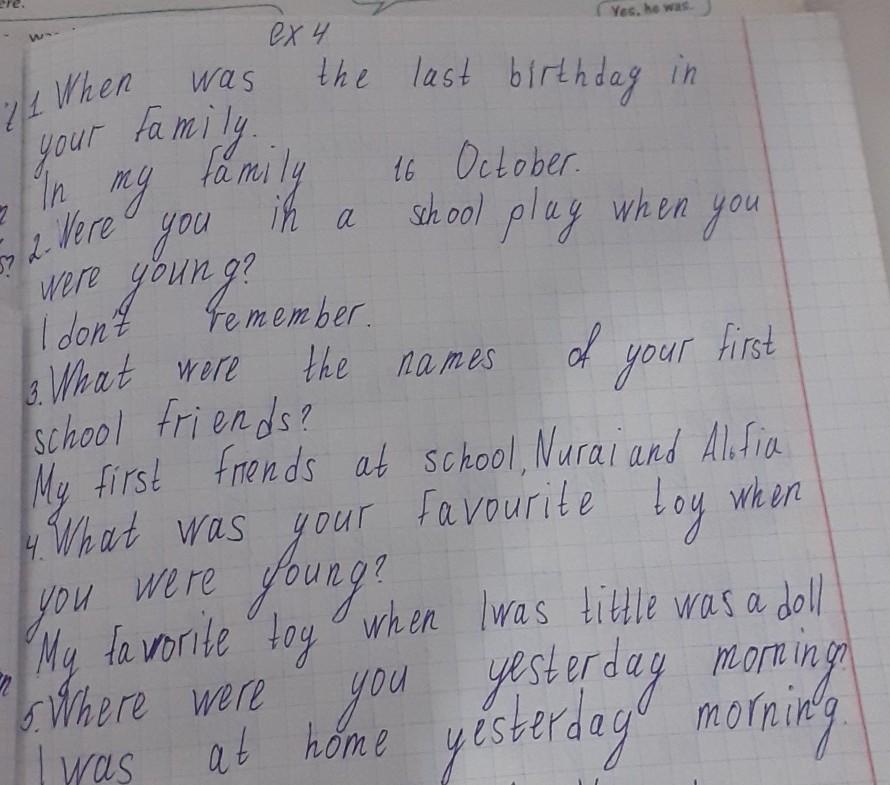 ere.
Yes, he was.
ex 4
1 When was the last birthday in
your family.
In my family 16 October.
2. Were you in a school play when you
were young?
I don't remember.
3. What were the names of your first
school friends?
My first friends at school, Nurai and Alsfia
4. What was your favourite toy when
you were young?
My favorite toy when I was little was a doll
5. Where were you yesterday morning?
I was at home yesterday morning.